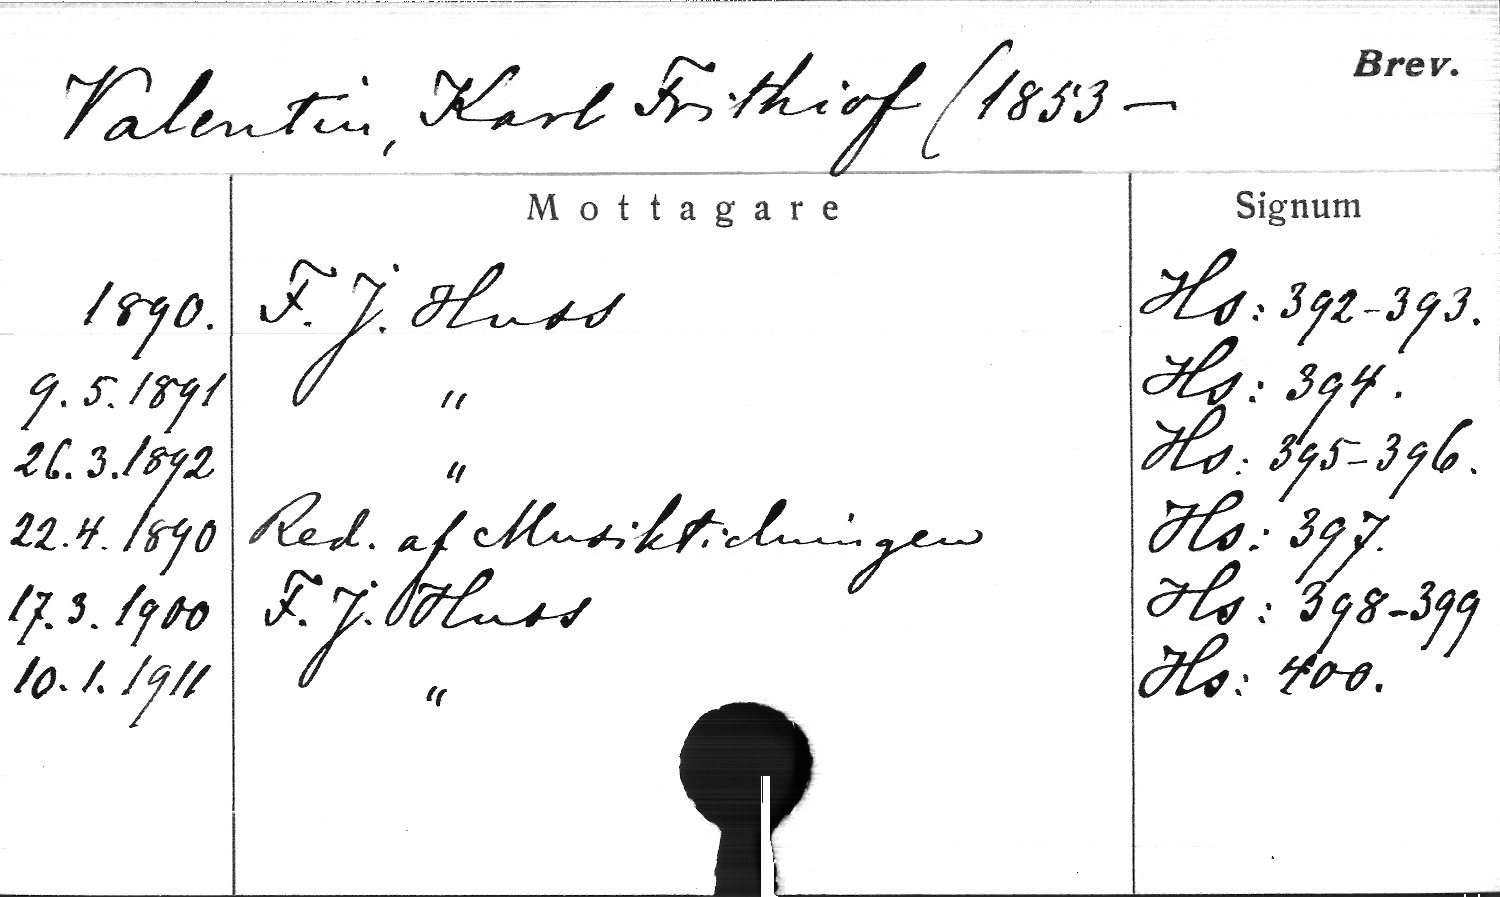 Brev.
Valentin, Karl Frithiof (1853 —
Mottagare Signum
1890. F. J. Huss Hs: 392-393.
9. 5. 1891 " Hs: 394.
26. 3. 1892 " Hs: 395-396.
22. 4. 1890 Red. af Musiktidningen Hs: 397.
17. 3. 1900 F. J. Huss Hs: 398-399
10. 1. 1911 " Hs: 400.